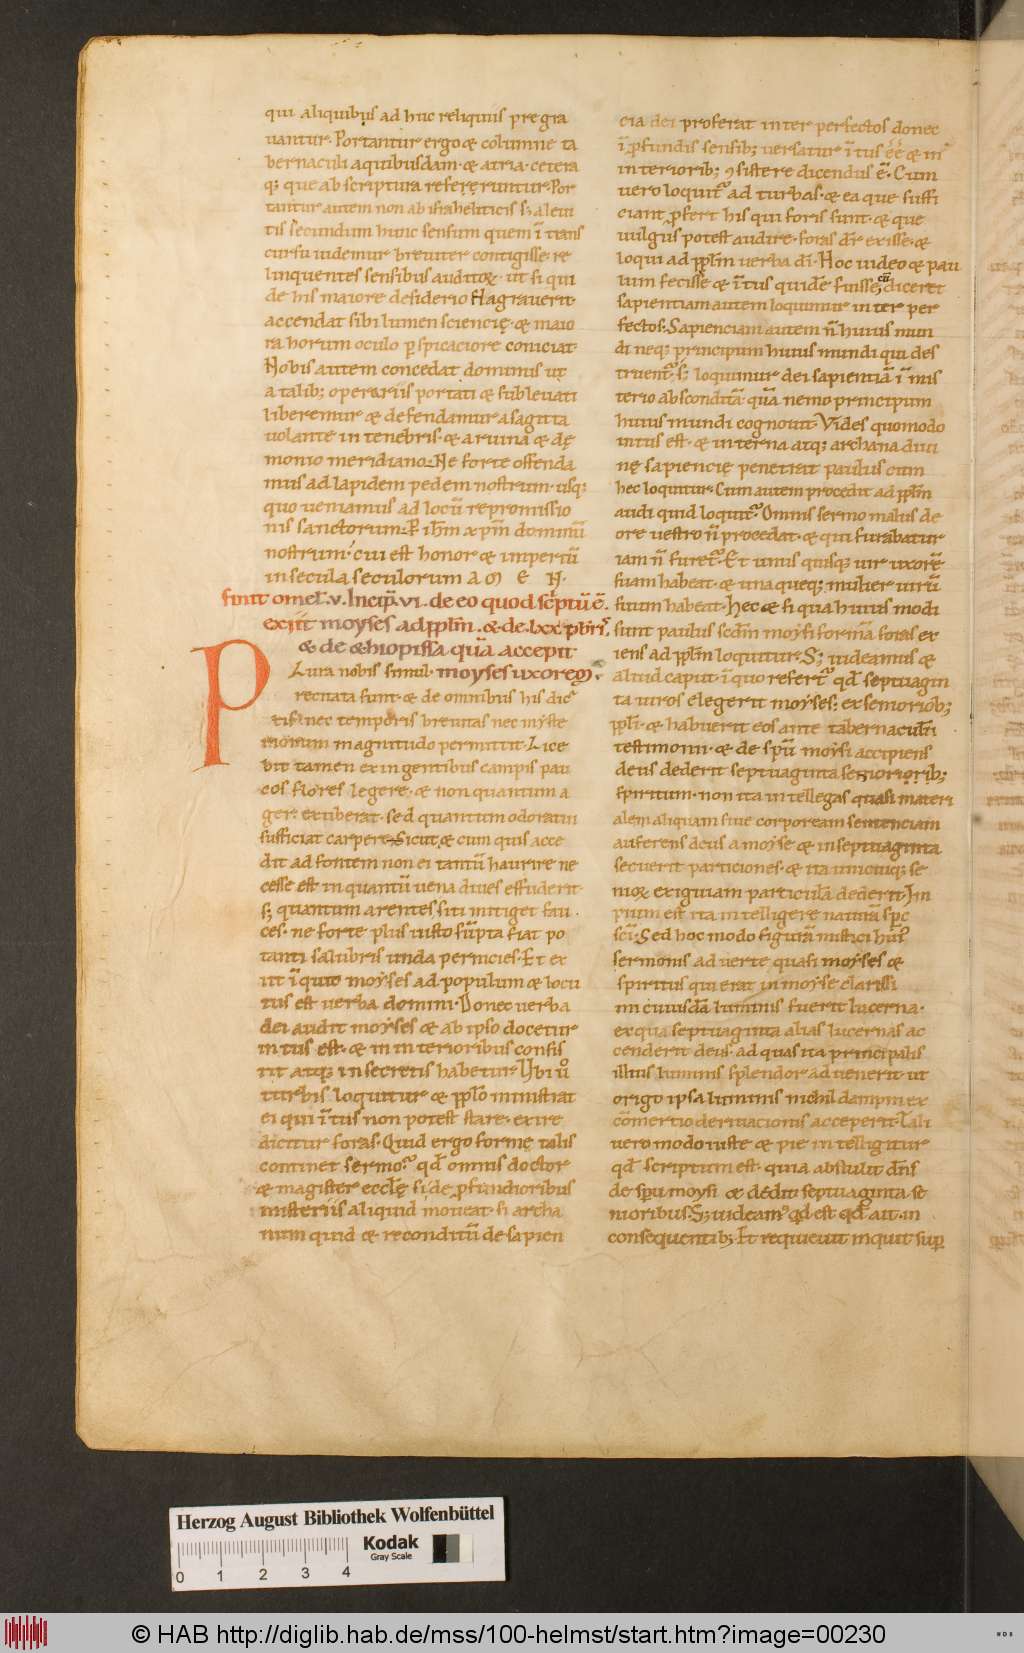 qui aliquibus ad huc reliquiis pregra
uantur. Portantur ergo & columne ta
bernaculi a quibusdam. & atria. cetera
q; que ab scriptura referẹruntur. Por
tantur autem non ab israheliticis s; a leui
tis secundum hunc sensum quem ī trans
cursu uidemur breuiter contigisse. re
linquentes sensibus auditoꝝ. ut si qui
de his maiore desiderio flagrauerit.
accendat sibi lumen scienciȩ. & maio
ra horum oculo ꝑspicaciore coniciat.
Nobis autem concedat dominus ut
a talib; operariis portati & subleuati
liberemur & defendamur a sagitta
uolante in tenebris. & a ruina & dȩ
monio meridiano. Ne forte offenda
mus ad lapidem pedem nostrum. usq;
quo ueniamus ad locū repromissio
nis sanctorum. ꝑ ihm xpm dominū
nostrum. cui est honor & imperiū
in secula seculorum A M E N.
finit omel. v. Incip̄. vi. de eo quod sc̄ptū ē.
exiit moyses ad ppl̄m. & de. lxx. pb̄ri.
& de ethiopissa quā accepit
moyses uxorem.
PLura nobis simul
recitata sunt. & de omnibus his dic
tis. nec temporis breuitas nec myste
riorum magnitudo permittit. Lice
bit tamen ex ingentibus campis pau
cos flores legere. & non quantum a
ger exuberat. sed quantum odoratui
sufficiat carpere. Sicut & cum quis acce
dit ad fontem non ei tantū haurire ne
cesse est in quantū uena diues effuderit.
s; quantum arentes siti mitiget fau
ces. ne forte plus iusto sūpta fiat po
tanti salubris unda pernicies. Et ex
iit īquit moyses ad populum & locu
tus est uerba domini. Donec uerba
dei audit moyses & ab ipso docetur
intus est. & in interioribus consis
tit atq; in secretis habetur. Ubi ū
turbis loquitur & ppl̄o ministrat
ei qui ītus non potest stare. exire
dicitur foras. Quid ergo formȩ talis
continet sermo. qđ omnis doctor
& magister eccl̄ȩ si de ꝓfundioribus
misteriis aliquid moueat. si archa
num quid & reconditū de sapien
cia dei proferat inter perfectos donec
ī ꝓfundis sensib; uersatur ītus ēē & in
interiorib; ꝯsistere dicendus ē. Cum
uero loquit ad turbas. & ea que suffi
ciant ꝓfert his qui foris sunt. & que
uulgus potest audire. foras dr̄ exisse. &
loqui ad ppl̄m uerba dī. Hoc uideo & pau
lum fecisse & ītus quidē fuisse cū diceret
sapientiam autem loquimur inter per
fectos. Sapienciam autem n̄ huius mun
di neq; principum huius mundi qui des
truent. s; loquimur dei sapientiā ī mis
terio absconditā. quā nemo principum
huius mundi cognouit. Vides quomodo
intus est. & interna atq; archana diui
nȩ sapienciȩ penetrat paulus cum
hec loquitur. Cum autem procedit ad ppl̄m
audi quid loquit. Omnis sermo malus de
ore uestro n̄ procedat. & qui furabatur
iam n̄ furet. Et unus quisq; uir uxorē
suam habeat. & una queq; mulier uirū
suum habeat. Hec & si qua huius modi
sunt paulus scd̄m moysi formā foras ex
iens ad ppl̄m loquitur. S; uideamus &
aliud caput. ī quo refert qđ septuagin
ta uiros elegerit moyses; ex seniorib;
ppl̄i. & habuerit eos ante tabernaculū
testimonii. & de spū moysi accipiens
deus dederit septuaginta seniorib;
spiritum. non ita intellegas quasi materi
alem aliquam siue corpoream sentenciam
auferens deus a moyse & in septuaginta
secuerit particiones. & ita unicuiq; se
nioꝝ exiguiam particulā dederit. Im
pium est ita intelligere naturā spc
scī. Sed hoc modo figurā mistici hui
sermonis aduerte quasi moyses &
spiritus qui erat in moyse clarissi
mi cuiusdā luminis fuerit lucerna.
ex qua septuaginta alias lucernas ac
cenderit deus. ad quas ita principalis
illius luminis splendor aduenerit ut
origo ipsa luminis nichil dampni ex
cōmertio deriuacionis acceperit. Tali
uero modo iuste & pie intelligitur
qđ scriptum est. quia abstulit dn̄s
de spū moysi & dedit septuaginta se
nioribus. S; uideam qđ est qđ ait. in
consequentib; Et requieuit inquit suꝑ
Herzog August Bibliothek Wolfenbüttel
Kodak
Gray Scale
0 1 2 3 4
© HAB http://diglib.hab.de/mss/100-helmst/start.htm?image=00230